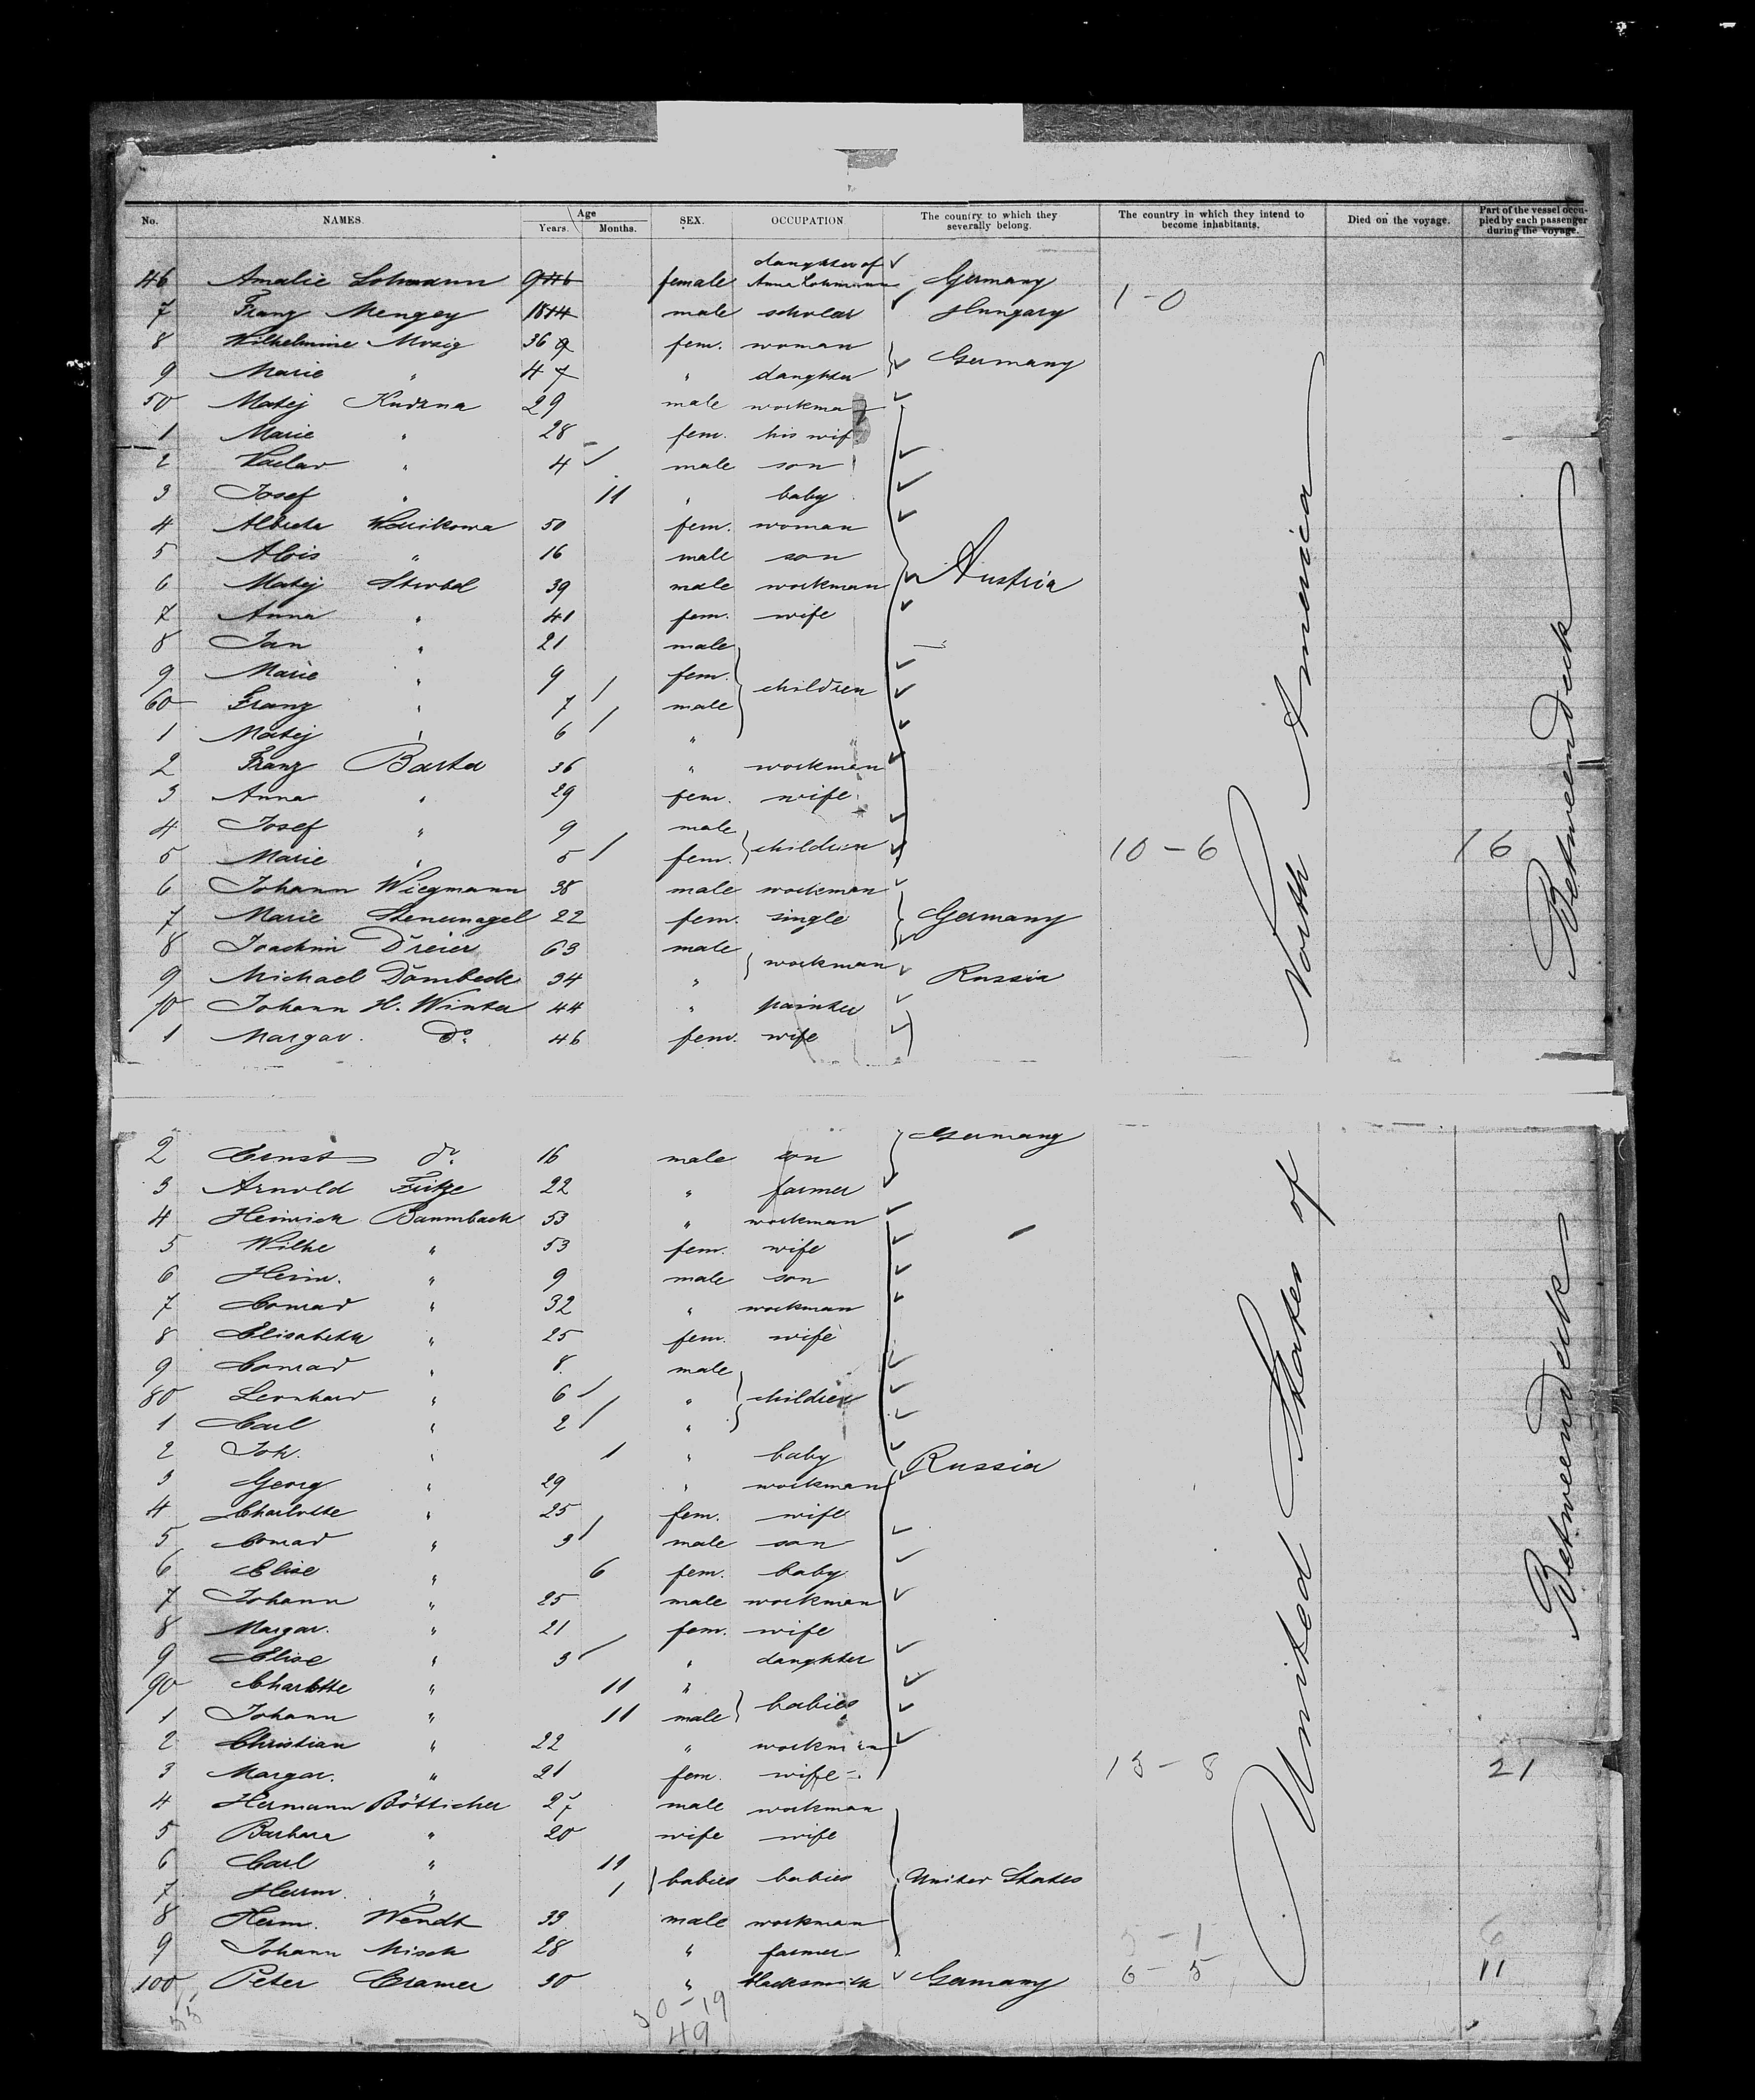 No. NAMES. Age Years. Months. SEX. OCCUPATION The country to which they severally belong. The country in which they intend to become inhabitants. Died on the voyage. Part of the vessel occupied by each passenger during the voyage.
46 Amalie Lohmann 9 female daughter of Anna Lohmann Germany
7 Franz Mengey 18 male scholar Hungary 1-0
8 Wilhelmine Mosig 36 fem. woman Germany
9 Marie " 4 " daughter
50 Matej Kudrna 29 male workman
1 Marie " 28 fem. his wife
2 Vaclav " 4 male son
3 Josef " 11 " baby
4 50 fem. woman
5 Alois " 16 male son
6 Matej 39 male workman Austria
7 Anna " 41 fem. wife
8 Jan " 21 male
9 Marie " 9 fem. children
60 Franz " 7 male
1 Matej " 6 "
2 Franz Barta 36 " workman
3 Anna " 29 fem. wife
4 Josef " 9 male children
5 Marie " 5 fem. 10-6 16
6 Johann Wiegmann 38 male workman
7 Marie Steuernagel 22 fem. single Germany
8 Joachim Dreier 63 male workman
9 Michael Dombeck 34 " Russia
70 Johann H. Winter 44 " painter
1 Margar. do. 46 fem. wife
Germany
2 Ernst do. 16 male son
3 Arnold Fitze 22 " farmer
4 Heinrich Baumbach 53 " workman
5 Wilhe " 53 fem. wife
6 Heinr. " 9 male son
7 Conrad " 32 " workman
8 Elisabeth " 25 fem. wife
9 Conrad " 8 male
80 Leonhard " 6 " children
1 Carl " 2 "
2 Joh. " 1 " baby Russia
3 Georg " 29 " workman
4 Charlotte " 25 fem. wife
5 Conrad " 3 male son
6 Elise " 6 fem. baby
7 Johann " 25 male workman
8 Margar. " 21 fem. wife
9 Elise " 3 " daughter
90 Charlotte " 11 "
1 Johann " 11 male babies
2 Christian " 22 " workman
3 Margar. " 21 fem. wife 13-8 21
4 Hermann Bötticher 27 male workman
5 Barbara " 20 wife wife
6 Carl " 11 babies babies United States
7 Herm. " 1
8 Herm. Wendt 33 male workman
9 Johann Misch 28 " farmer 5-1 6
100 Peter Cramer 30 " blacksmith Germany 6-5 11
30-19
49
United States of North America
Betweendeck
Betweendeck